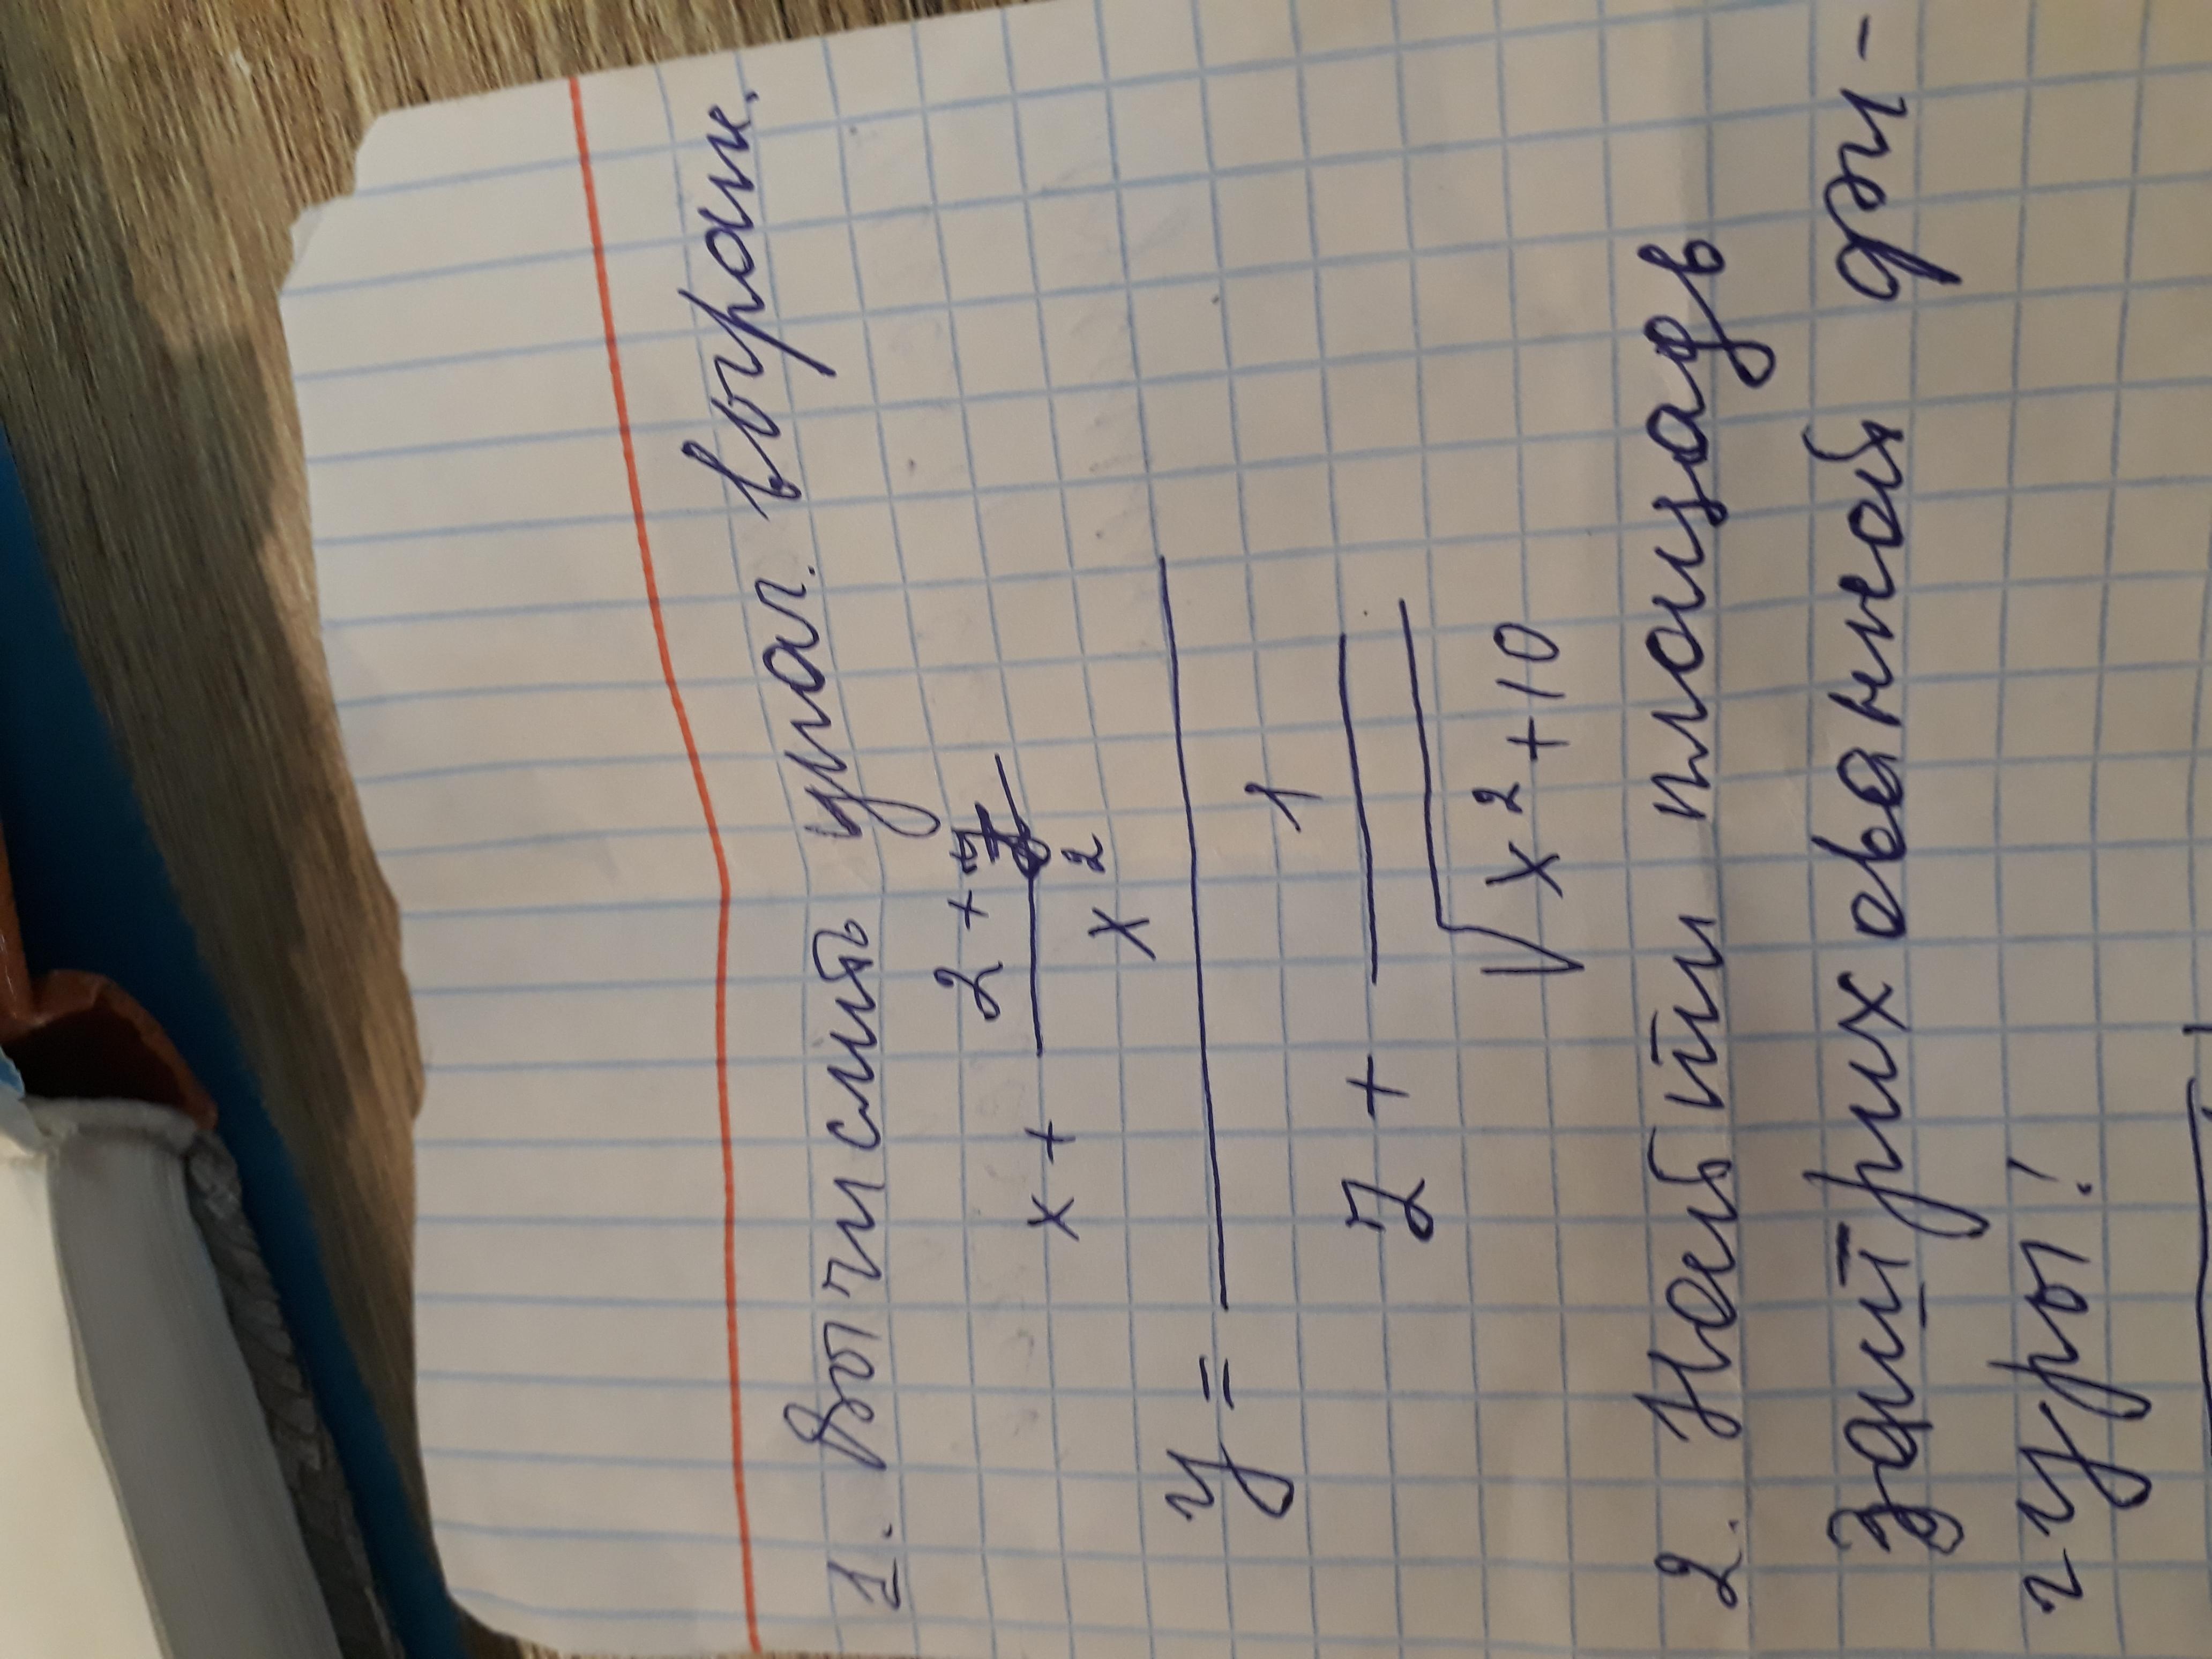 1. Вычислить указ. выраж.
2 + y
x + ———
x²
y = ————————
1
z + ———
√x² + 10
2. Найти площадь
заштрихованной фи-
гуры!